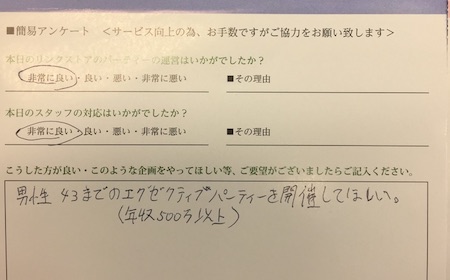 ■簡易アンケート　＜サービス向上の為、お手数ですがご協力をお願い致します＞
本日のリンクストアのパーティーの運営はいかがでしたか？
非常に良い・良い・悪い・非常に悪い　■その理由
本日のスタッフの対応はいかがでしたか？
非常に良い・良い・悪い・非常に悪い　■その理由
こうした方が良い・このような企画をやってほしい等、ご要望がございましたらご記入ください。
男性 43までのエグゼクティブパーティーを開催してほしい。
(年収500万以上)